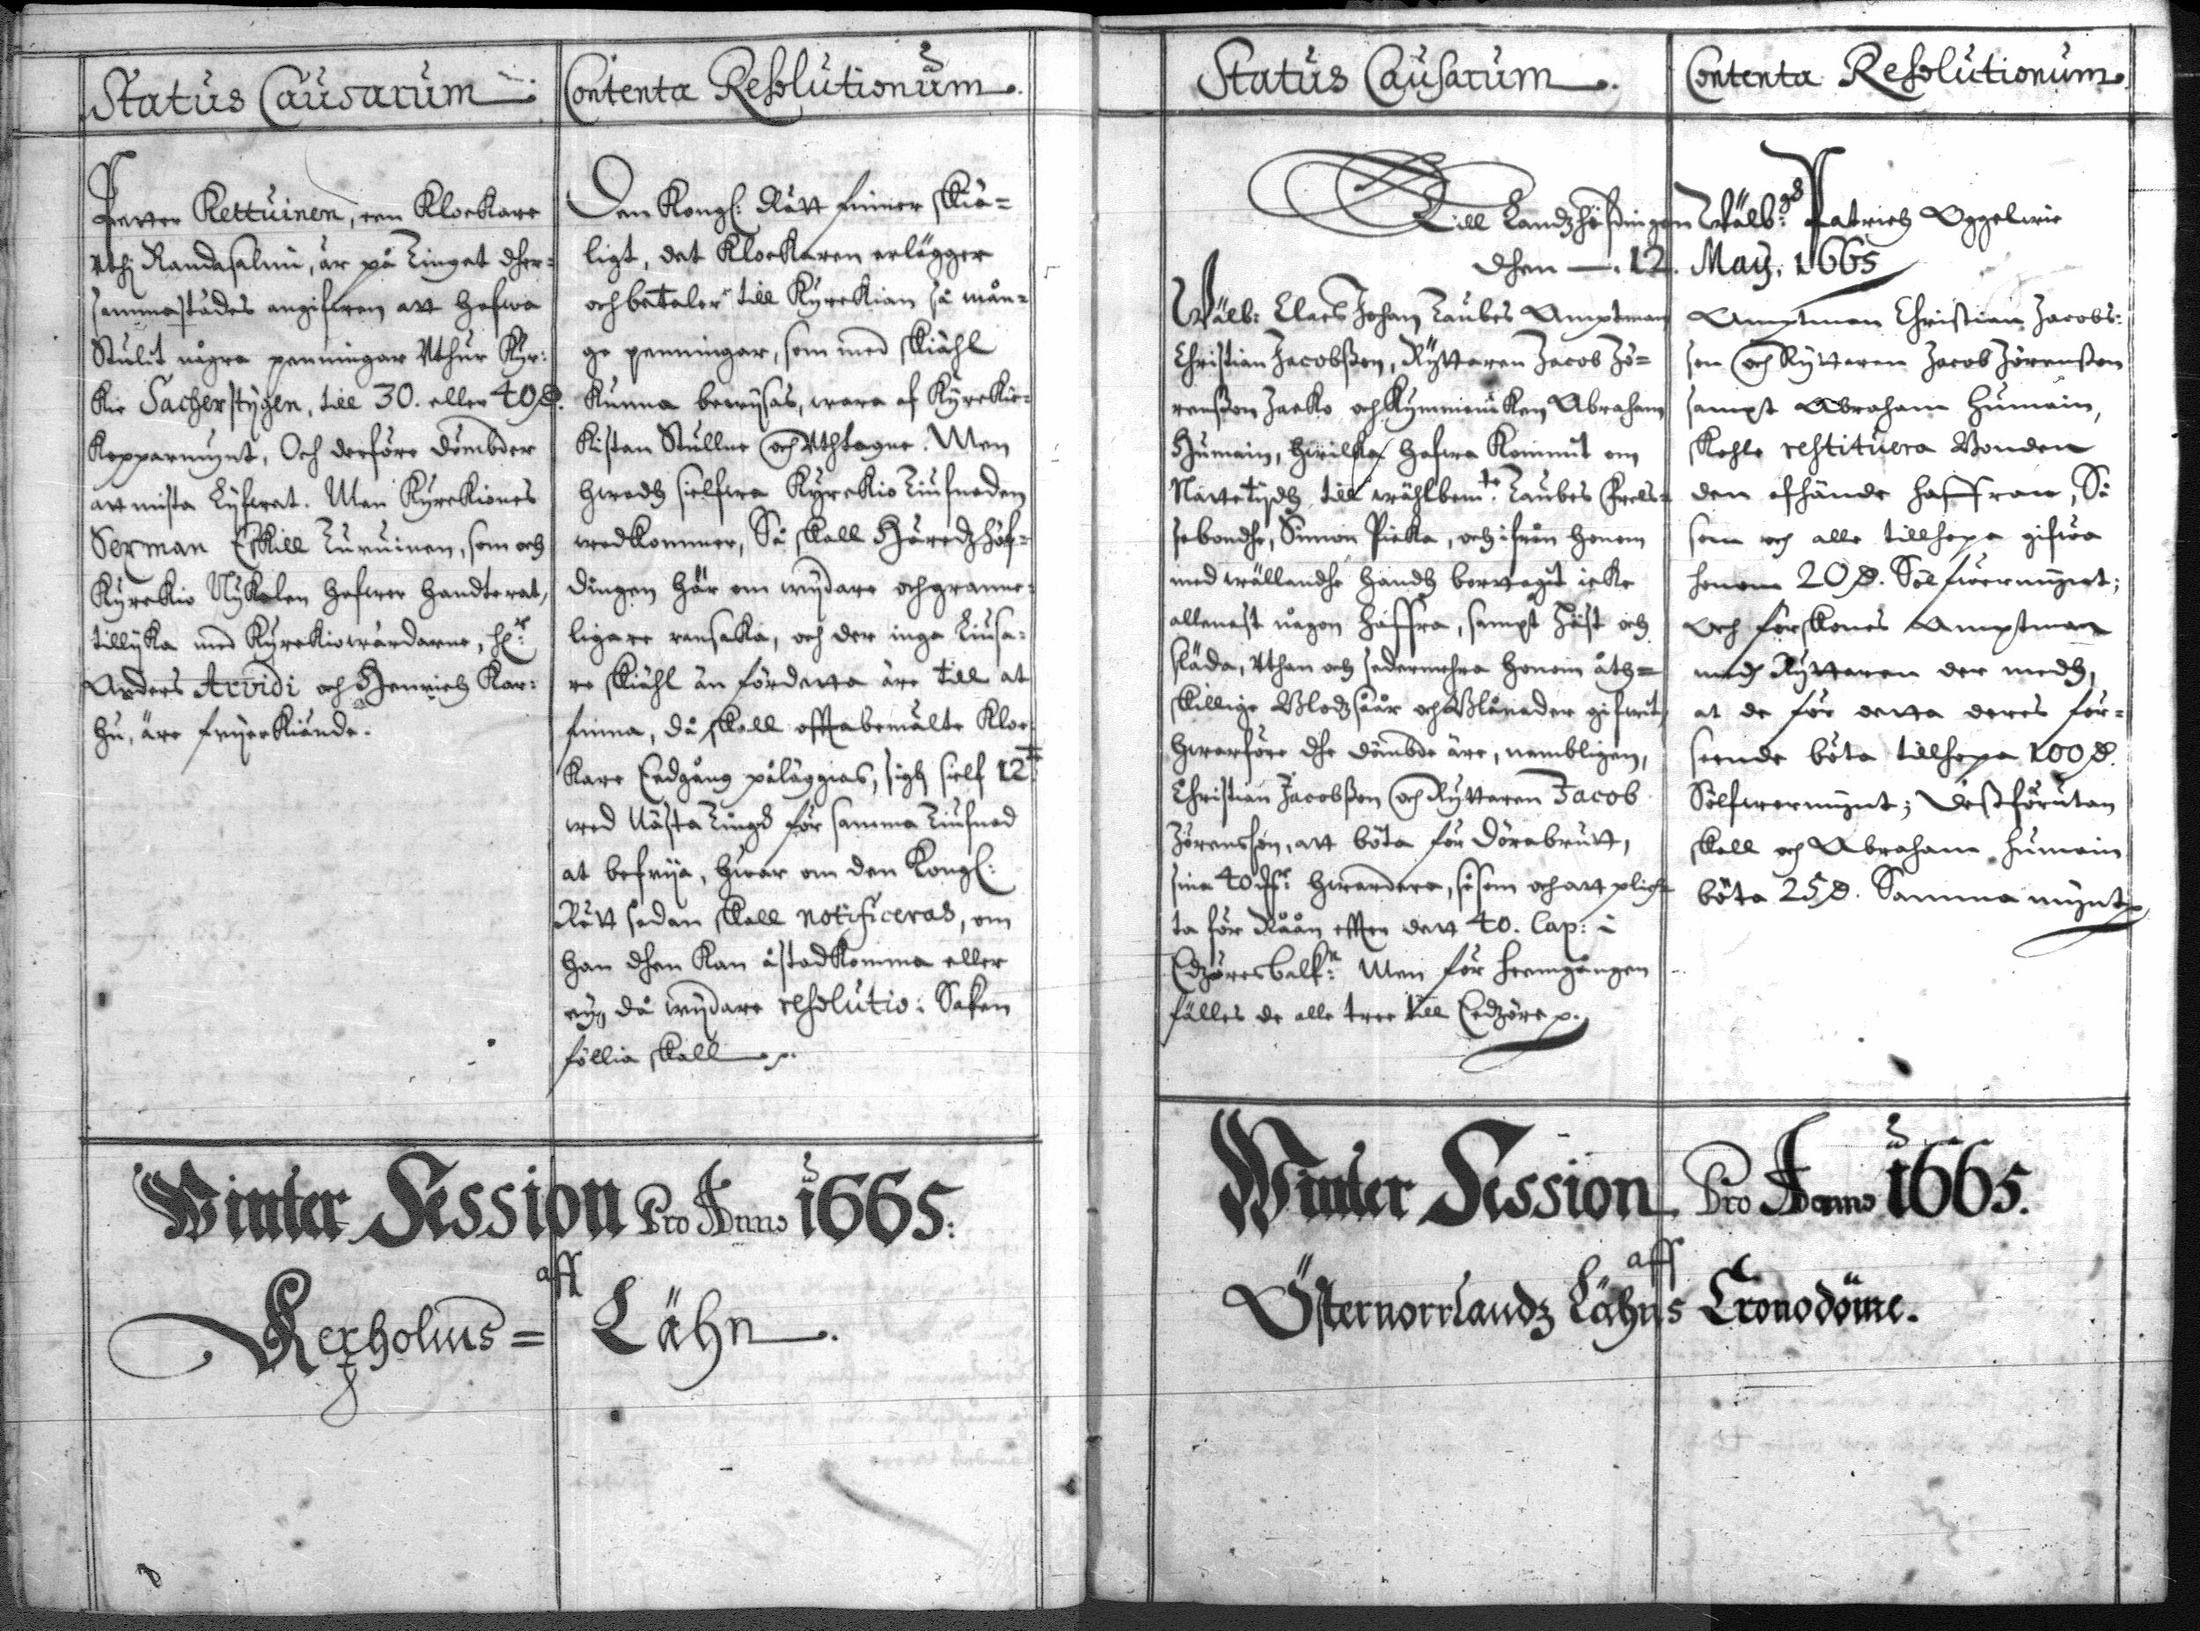 Status Causarum.
Contenta Resolutionum.
Petter Kettuinen, een Klockare
vthj Randasalmi, är på Tinget dher-
sammastädes angifwen att hafwa
Stulit några penningar Vthur Kyr-
kie Sacherstygen, till 30. eller 40 D.
Kopparmynt, Och derföre dömbder
att mista Lyfwet. Men Kyrckiones
Sexman Eskill Turuinen, som och
Kyrckio Nykelen hafwer handterat,
tillyka med Kyrckiowärdarne, H:r
Anders Arvidi och Henrich Kar-
hu, äre frijerkiände.
Den Kongl: Rätt finner skiä-
ligt, det Klockaren erlägger
och betaler till Kyrckian så mån-
ge penningar, som med skiähl
kunna bewijsas, wara af Kyrckie-
kistan Stullne och Vthtagne. Men
hwadh sielfwa Kyrckio Tiufnaden
wedkommer, Så skall Häredzhöf-
dingen här om wijdare och granne-
ligare ransaka, och der inga Liusa-
re skiähl än för detta äre till at
finna, då skall offtabemälte Kloc-
kare Eedgång påläggias, sigh sielf 12:te
wed Nästa Tingh för samma Tiufnad
at befrija, hwar om den Kongl:
Rätt sedan skall notificeras, om
han dhen kan åstadkomma eller
eij, då wijdare resolutio i Saken
föllia skall.
Winter Session Pro Anno 1665:
aff
Kexholms= Lähn.
Status Causarum.
Contenta Resolutionum.
Till Landzhöfdingen Wälb:gd Patrich Oggelwie
Dhen 12. Maij. 1665
Wälb: Claes Johan Taubes Amptman
Christian Jacobsson, Ryttaren Jacob Jö-
rensson Jacko och Kymmenicken Abraham
Humain, hwilka hafwa kommit om
Nattetijdh till wählbem:te Taubes Frels-
sebondhe, Simon Picka, och ifrån honom
med wällandhe handh borttagit icke
allenast någon haffra, sampt häst och
släda, Vthan och sedermehra honom åth-
skillige Blodhsåår och Blånader gifwit,
hwarföre dhe dömbde äre, nembligen,
Christian Jacobsson och Ryttaren Jacob
Jörensson, att böta för Dörabrutt,
sina 40 hwardera, så som och att plich-
ta för Råån efften dett 40. Cap: i
Edzöresbalk:n Men för heemgången
fälles de alle tree till Eedzöre p.
Amptman Christian Jacobs-
son och Ryttaren Jacob Jörensson
sampt Abraham Humain,
skohle restituera Bonden
den afhände haffran, Så
som och alle tillhopa gifwa
honom 20 D. Sölfwermynt;
Och förskones Amptman
medh Ryttaren der medh,
at de för detta deres för-
seende böta tillhopa 100 D.
Sölfwermynt; Dessförutan
skall och Abraham Humain
böta 25 D. Samma mynt
Winter Session Pro Anno 1665.
aff
Östernorrlandz Lähns Cronodöme.